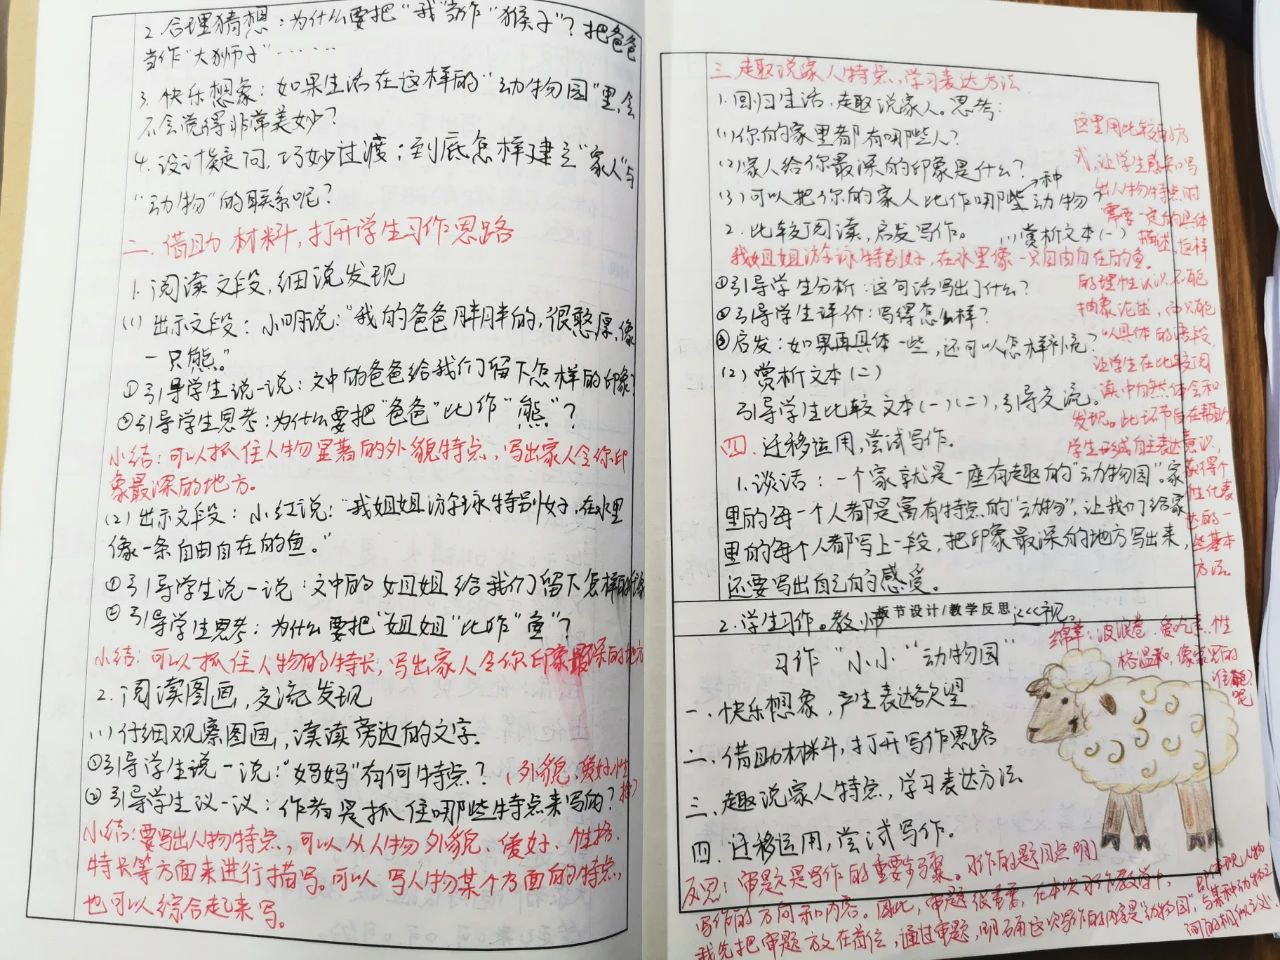 2. 合理猜想：为什么要把“我”当作“猴子”？把爸爸
当作“大狮子”……
3. 快乐想象：如果生活在这样的“动物园”里，会
不会觉得非常美妙？
4. 设计疑问，巧妙过渡：到底怎样建立“家人”与
“动物”的联系呢？
二、借助材料，打开学生习作思路
1. 阅读文段，细说发现
(1) 出示文段：小明说：“我的爸爸胖胖的，很憨厚，像
一只熊。”
①引导学生说一说：文中的爸爸给我们留下怎样的印象？
②引导学生思考：为什么要把“爸爸”比作“熊”？
小结：可以抓住人物显著的外貌特点，写出家人令你印
象最深的地方。
(2) 出示文段：小红说：“我姐姐游泳特别好，在水里
像一条自由自在的鱼。”
①引导学生说一说：文中的姐姐给我们留下怎样的印象
②引导学生思考：为什么要把“姐姐”比作“鱼”？
小结：可以抓住人物的特长，写出家人令你印象最深的地方
2. 阅读图画，交流发现
(1) 仔细观察图画，读读旁边的文字。
①引导学生说一说：“妈妈”有何特点？（外貌、爱好、性格）
②引导学生议一议：作者是抓住哪些特点来写的？
小结：要写出人物特点，可以从人物外貌、爱好、性格、
特长等方面来进行描写。可以写人物某个方面的特点，
也可以综合起来写。
三、趣说家人特点，学习表达方法
1. 回归生活，趣说家人。思考：
(1) 你的家里都有哪些人？
(2) 家人给你最深的印象是什么？
(3) 可以把你的家人比作哪些动物？
种
2. 比较阅读，启发写作。 (1)赏析文本(一)
我姐姐游泳特别好，在水里像一只自由自在的鱼。
①引导学生分析：这句话写出了什么？
②引导学生评价：写得怎么样？
③启发：如果再具体一些，还可以怎样补充？
(2) 赏析文本(二)
引导学生比较文本(一)(二)，引导交流。
四、迁移运用，尝试写作。
1. 谈话：一个家就是一座有趣的“动物园”。家
里的每一个人都是富有特点的“动物”，让我们给家
里的每个人都写上一段，把印象最深的地方写出来，
还要写出自己的感受。
这里用比较的方
式，让学生感知写
出人物特点时
需要一定的具体
描述，这样
的理性认识，不能
抽象论述，而只能
以具体的语段，
让学生在比较阅
读中自然体会和
发现。此环节旨在帮助
学生形成自主表达意识，
获得个
性化表
达的一
些基本
方法。
章节设计/教学反思
2. 学生习作。教师巡视。
习作“小小“动物园
一、快乐想象，产生表达欲望
二、借助材料，打开写作思路
三、趣说家人特点，学习表达方法
四、迁移运用，尝试写作。
绵羊：波浪卷、爱吃素、性
格温和，像家里的
谁呢
反思：审题是写作的重要步骤。习作的题目点明
写作的方向和内容。因此，审题很重要，在本次习作教学中，
我先把审题放在首位，通过审题，明确这次习作的内容是“动物园”，
即体现人物
与某种动物之
间的相似之处。